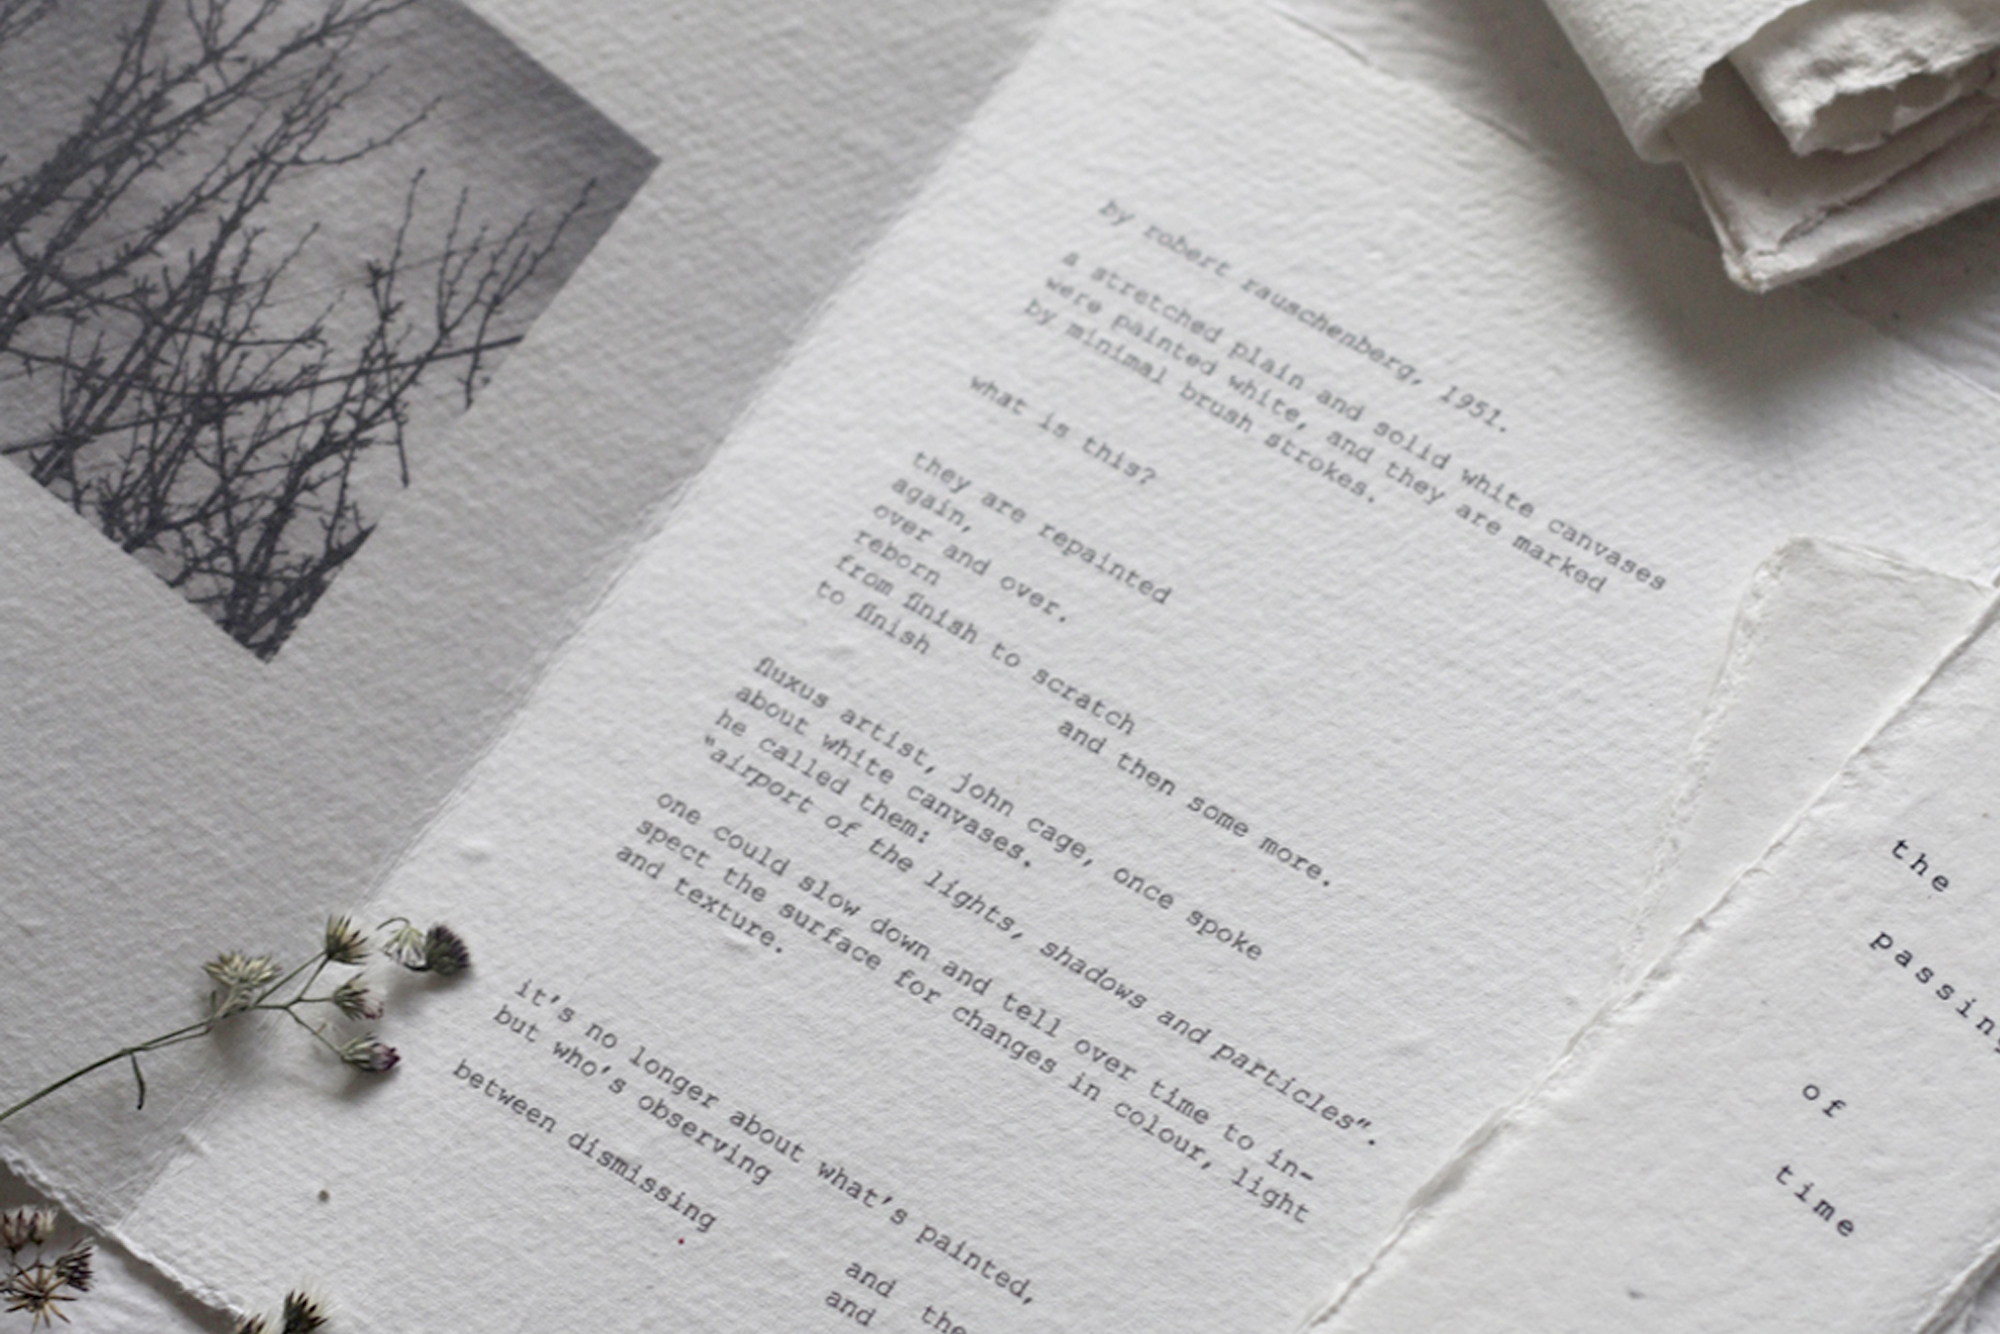 by robert rauschenberg, 1951.
a stretched plain and solid white canvases
were painted white, and they are marked
by minimal brush strokes.
what is this?
they are repainted
again,
over and over.
reborn
from finish to scratch
to finish
and then some more.
fluxus artist, john cage, once spoke
about white canvases.
he called them:
"airport of the lights, shadows and particles".
one could slow down and tell over time to in-
spect the surface for changes in colour, light
and texture.
it's no longer about what's painted,
but who's observing
between dismissing
and the
and
the
passing
of
time